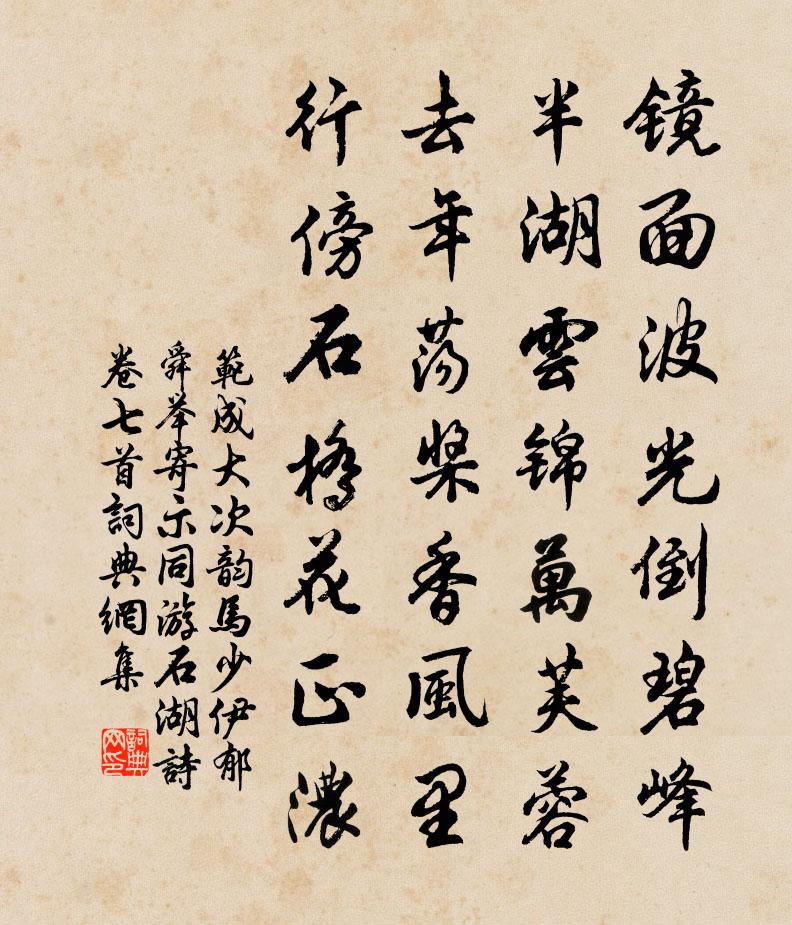 镜面波光倒碧峰
半湖雲錦萬芙蓉
去年荡桨香風里
行傍石橋花正濃
範成大次韵馬少伊郁
舜举寄示同游石湖詩
卷七首詞典網集
詞典
网印